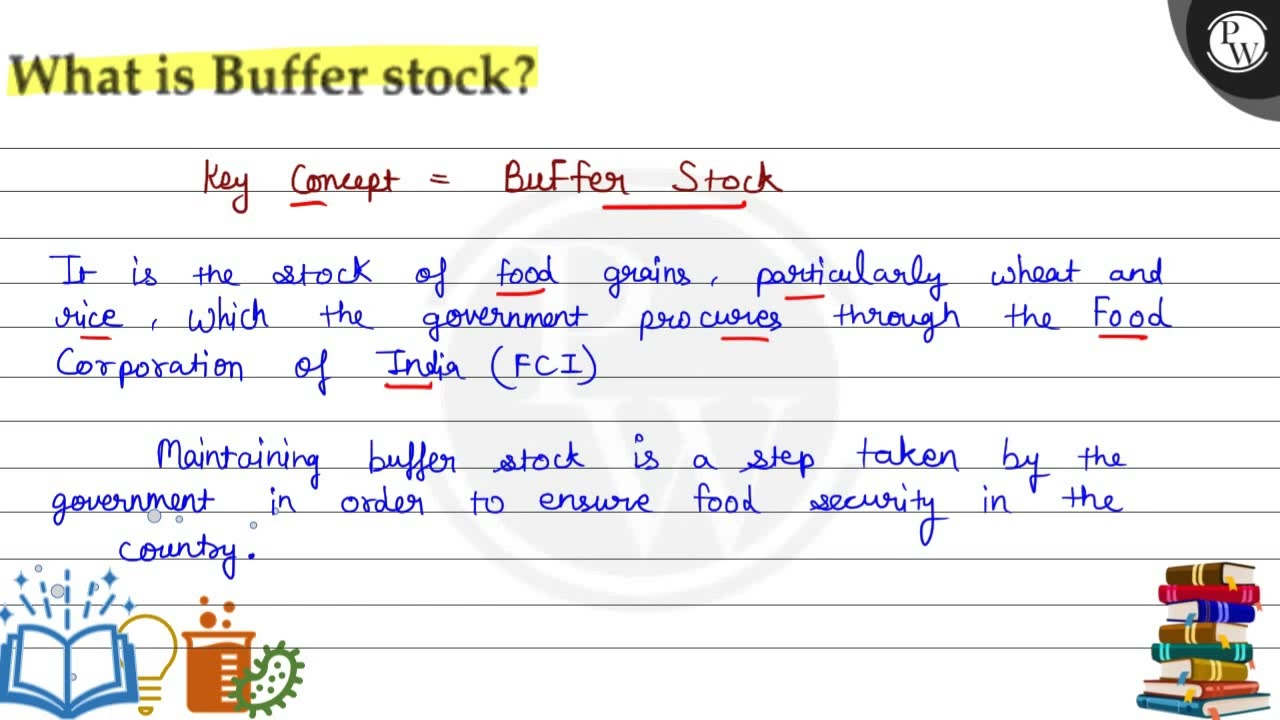 What is Buffer stock?
PW
Key Concept = Buffer Stock
It is the stock of food grains, particularly wheat and
rice, which the government procures through the Food
Corporation of India (FCI)
Maintaining buffer stock is a step taken by the
government in order to ensure food security in the
country.
PW